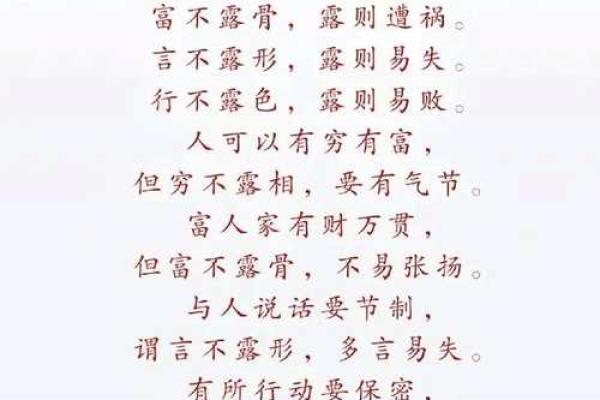 富不露骨，露则遭祸。
言不露形，露则易失。
行不露色，露则易败。
人可以有穷有富，
但穷不露相，要有气节。
富人家有财万贯，
但富不露骨，不易张扬。
与人说话要节制，
谓言不露形，多言易失。
有所行动要保密，